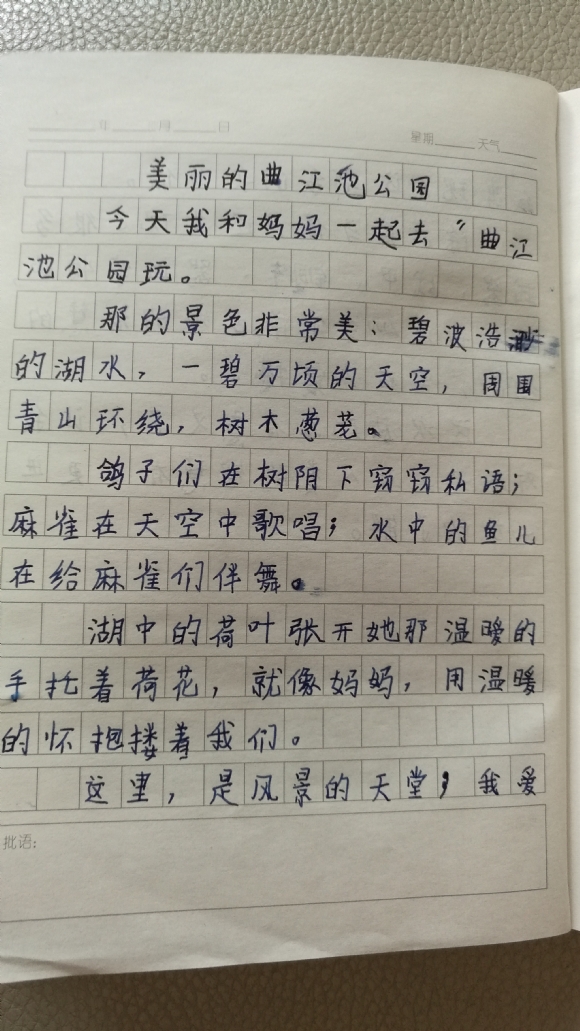 年 月 日
星期 天气
美丽的曲江池公园
今天我和妈妈一起去"曲江
池公园玩。
那的景色非常美：碧波浩渺
的湖水，一碧万顷的天空，周围
青山环绕，树木葱茏。
鸽子们在树阴下窃窃私语；
麻雀在天空中歌唱；水中的鱼儿
在给麻雀们伴舞。
湖中的荷叶张开她那温暖的
手托着荷花，就像妈妈，用温暖
的怀抱搂着我们。
这里，是风景的天堂，我爱
批语：